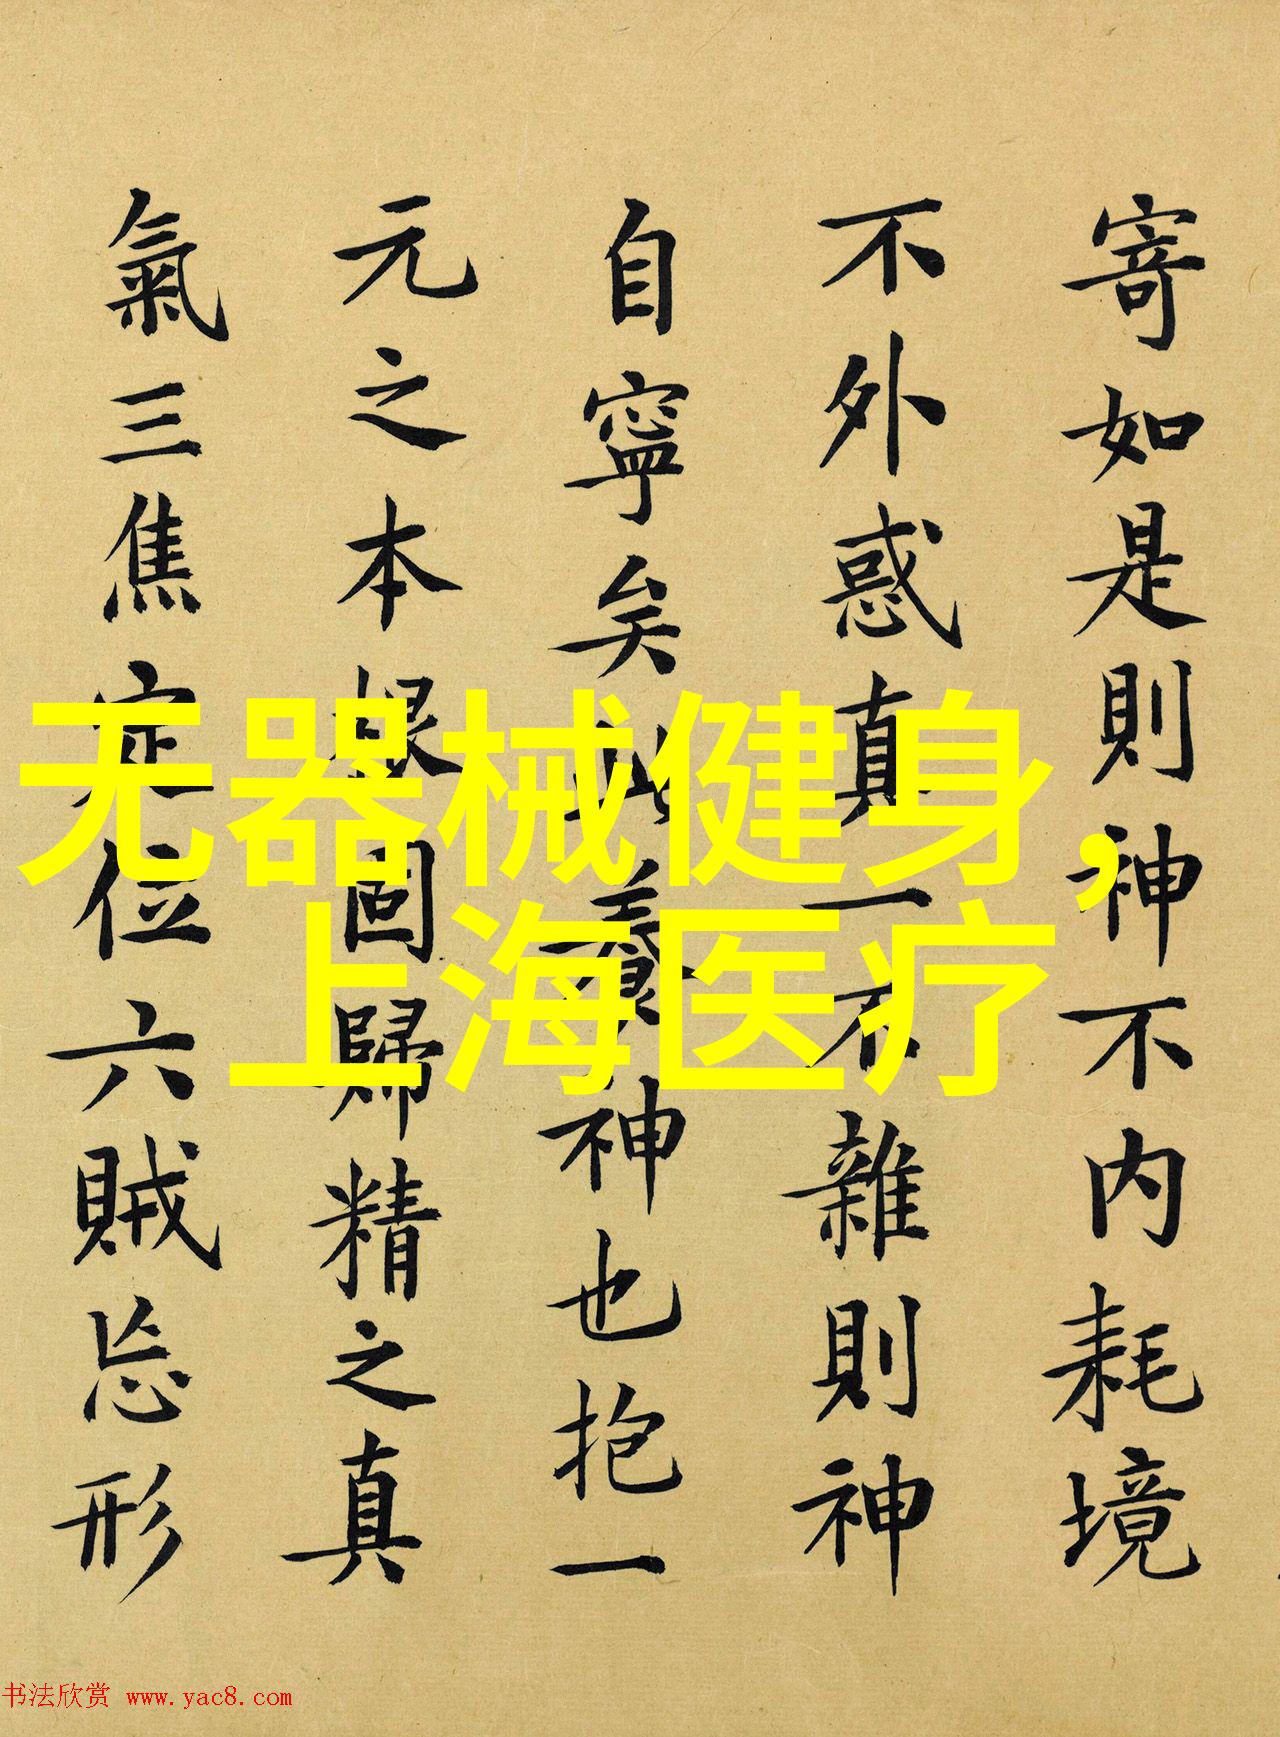 寄如是則神不内耗境
不外惑真一不雜則神
自寧矣此養神也抱一
元之本根固歸精之真
氣三焦定位六賊忘形
无器械健身，
上海医疗
书法欣赏 www.yac8.com